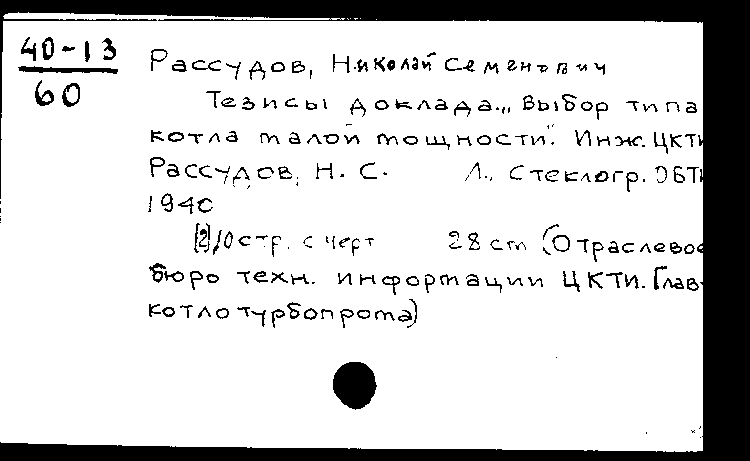 40-13
60
Рассудов, Николай Семенович
Тезисы доклада „Выбор типа
котла малой мощности". Инж. ЦКТИ
Рассудов, Н. С. Л., Стеклогр. ОБТИ
1940
[2], 10 стр. с черт 28 cm (Отраслевое
бюро техн. информации ЦКТИ. Глав-
котлотурбопрома)